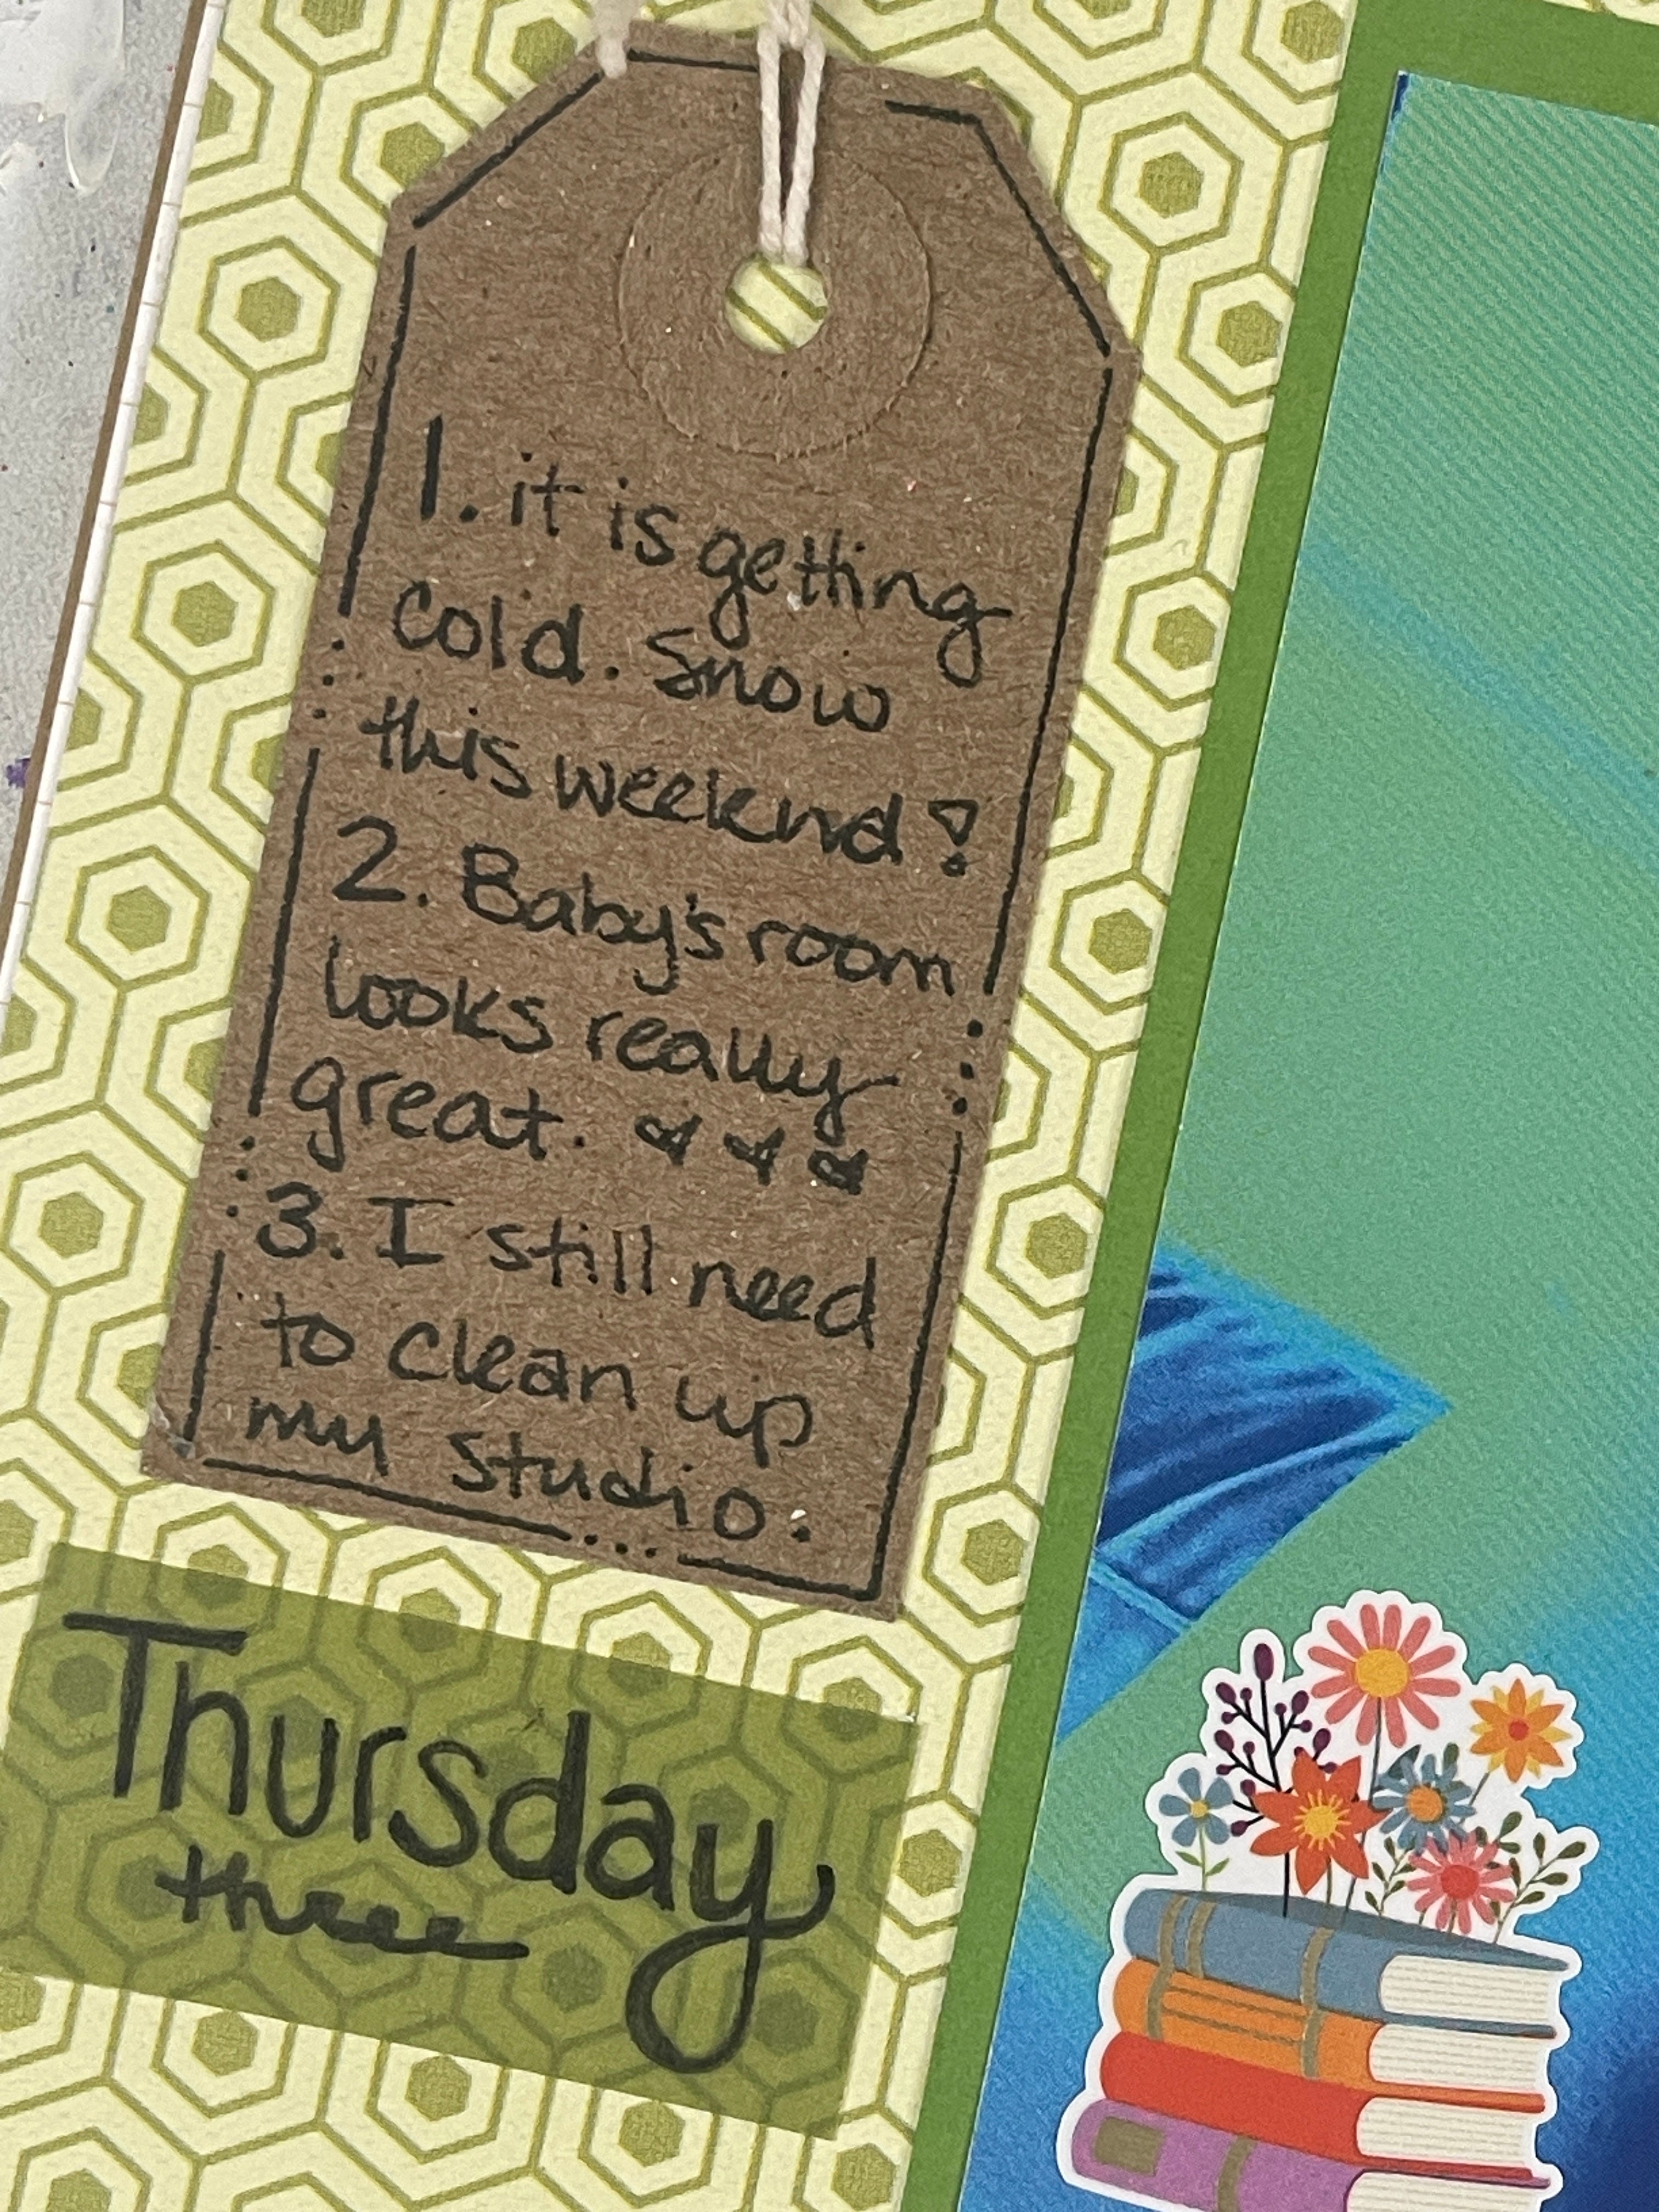 1. it is getting
cold. Snow
this weekend!
2. Baby's room
looks really
great.
3. I still need
to clean up
my studio.
Thursday
three